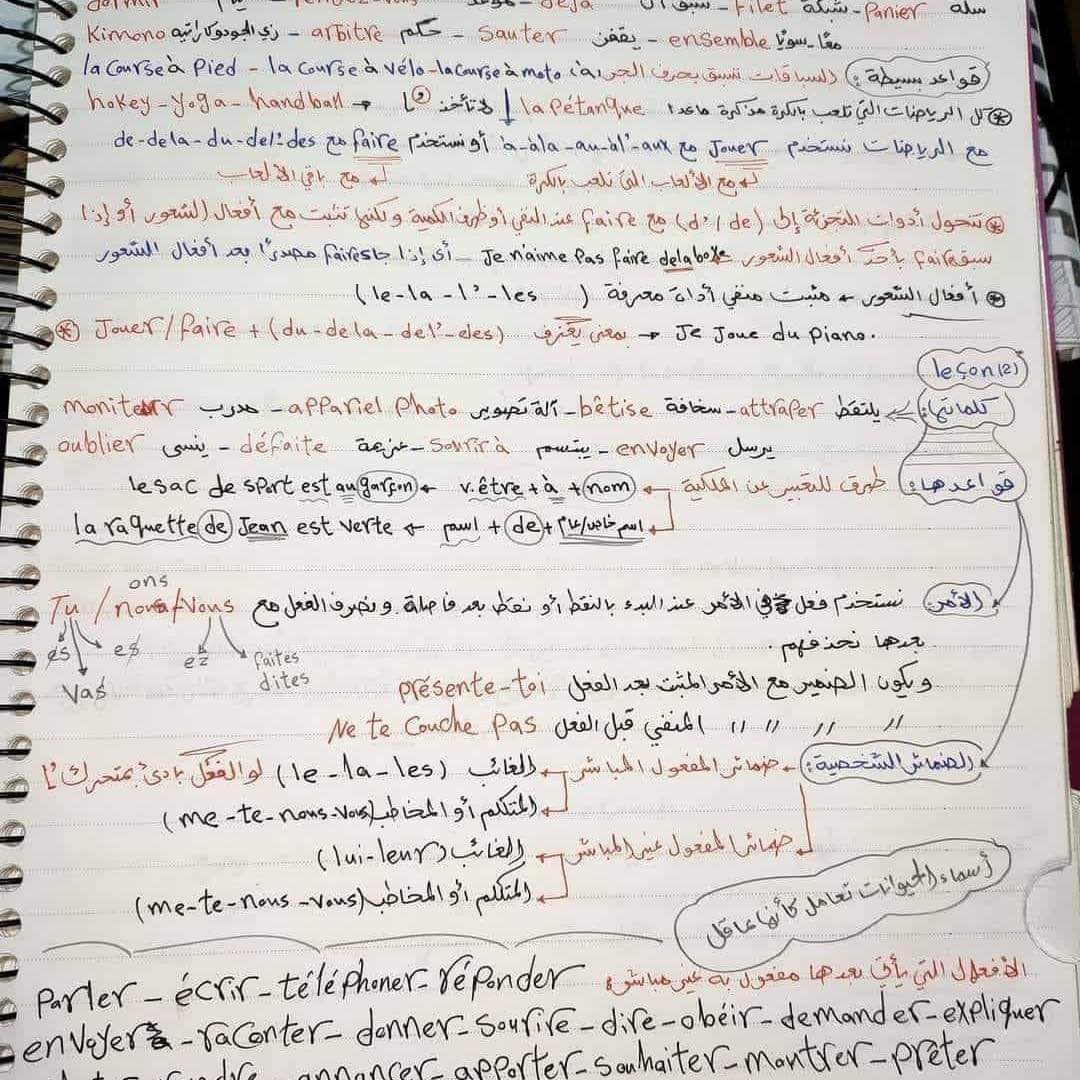 سلة Panier - شبكة Filet - déjà
معًا - سويًا ensemble - يقفز Sauter - حكم arbitre - زي الجودو كاراتيه Kimono
قواعد بسيطة: السباقات تسبق بحرف الجر (à) la course à Pied - la course à vélo - la course à moto
كل الرياضات التي تلعب بالكرة مذكرة ماعدا la Pétanque لا تأخذ hokey - yoga - handball
مع الرياضات نستخدم Jouer مع à - à la - au - à l' - aux أو نستخدم faire مع de - de la - du - de l' - des
مع الألعاب التى تلعب بالكرة مع باقي الألعاب
تتحول أدوات التجزئة إلى (d' / de) مع faire عند النفي أو ظرف الكمية ولكنها تثبت مع أفعال الشعور أو إذا
سبق faire بأحد أفعال الشعور Je n'aime Pas faire de la boxe أى إذا جاء faire مصدرًا بعد أفعال الشعور
أفعال الشعور + مثبت منفي أداة معرفة (le - la - l' - les)
Jouer / faire + (du - de la - de l' - des) بمعنى يعزف → Je Joue du Piano.
leçon (2)
كلماتها: يلتقط attraper - سخافة bêtise - آلة تصوير appariel Photo - مدرب moniteur
يرسل envoyer - يبتسم Sourir à - هزيمة défaite - ينسى oublier
قواعدها: طرق للتعبير عن الملكية v. être + à + nom ← le sac de sport est au garçon
اسم خاص/عام + de + اسم ← la raquette de Jean est verte
ons
الأمر: نستخدم فعل في الأمر عند البدء بالنقط أو نقط بعد فاصلة ونصرف الفعل مع Tu / nous / Vous
es es ez faites
Vas dites
بعدها نحذفهم.
ويكون الضمير مع الأمر المثبت بعد الفعل présente-toi
" " " " المنفي قبل الفعل Ne te Couche Pas
الضمائر الشخصية: ضمائر المفعول المباشر الغائب (le - la - les) لو الفعل بادئ بمتحرك l'
المتكلم أو المخاطب (me - te - nous - vous)
ضمائر المفعول غير المباشر الغائب (lui - leur)
المتكلم أو المخاطب (me - te - nous - vous)
أسماء الحيوانات تعامل كأنها عاقل
الأفعال التي يأتي بعدها مفعول به غير مباشر:
Parler - écrir - téléphoner - réponder
envoyer - raconter - donner - sourire - dire - obéir - demander - expliquer
annoncer - apporter - souhaiter - montrer - prêter